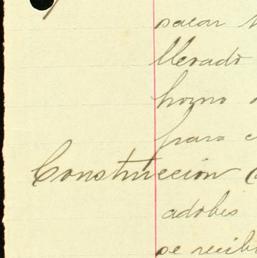 sacar
llevado
horno
para
Construccion
adobes
se recib